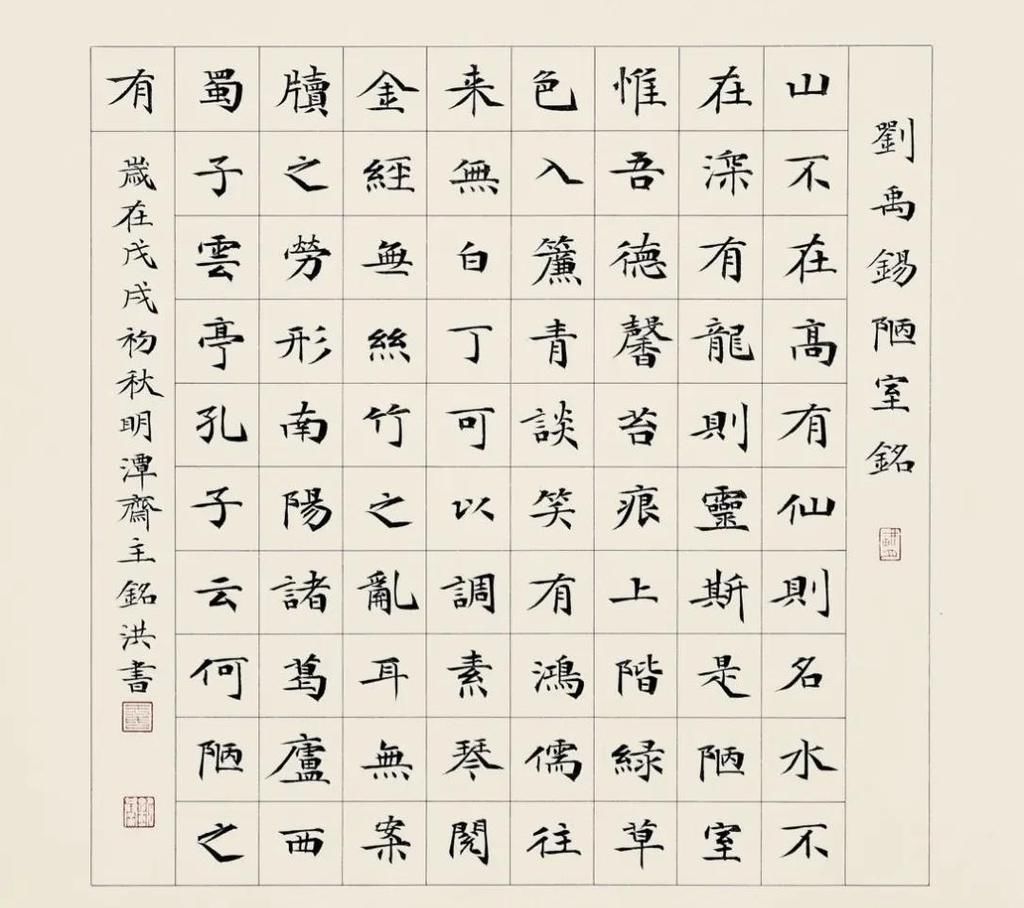 劉禹錫陋室銘
山不在高有仙則名水不
在深有龍則靈斯是陋室
惟吾德馨苔痕上階緑草
色入簾青談笑有鴻儒往
来無白丁可以調素琴閲
金經無絲竹之亂耳無案
牘之勞形南陽諸葛廬西
蜀子雲亭孔子云何陋之
有
歲在戊戌初秋明潭齋主銘洪書